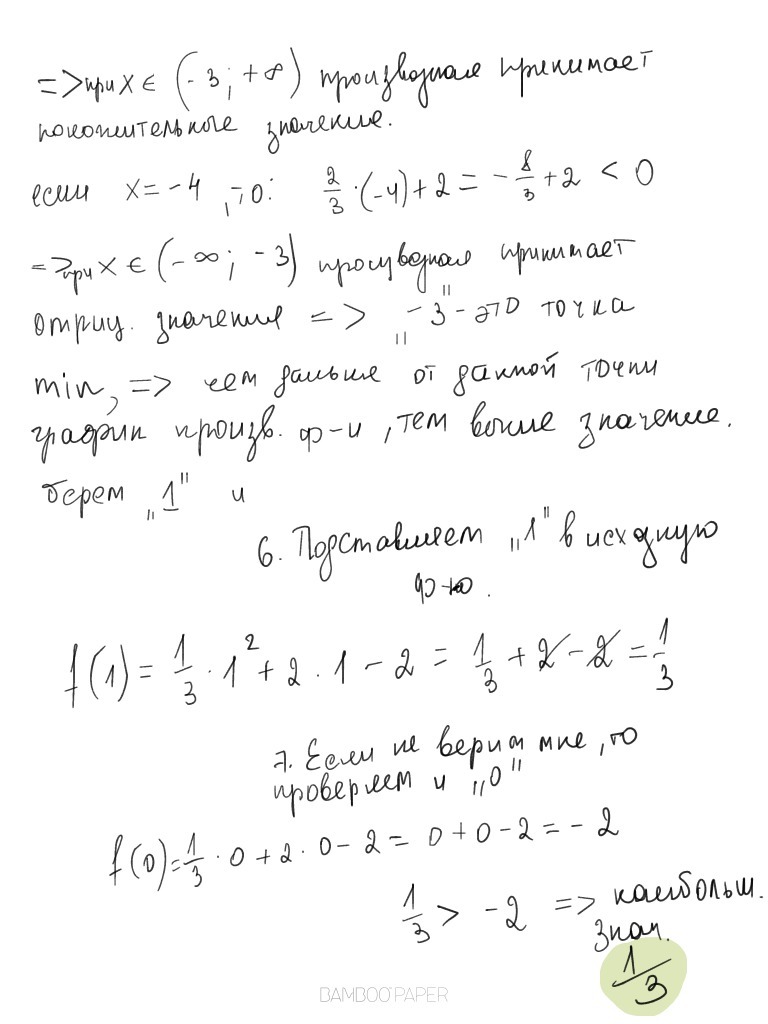 => при x ∈ (-3; +∞) производная принимает
положительное значение.
если x = -4, то: 2/3 · (-4) + 2 = -8/3 + 2 < 0
=> при x ∈ (-∞; -3) производная принимает
отриц. значения => „-3" - это точка
min, => чем дальше от данной точки
график произв. ф-и, тем выше значение.
берем „1" и
6. Подставляем „1" в исходную
ф-ю.
f(1) = 1/3 · 1² + 2 · 1 - 2 = 1/3 + 2 - 2 = 1/3
7. Если не верим мне, то
проверяем и „0"
f(0) = 1/3 · 0 + 2 · 0 - 2 = 0 + 0 - 2 = -2
1/3 > -2 => наибольш.
знач.
1/3
BAMBOO PAPER